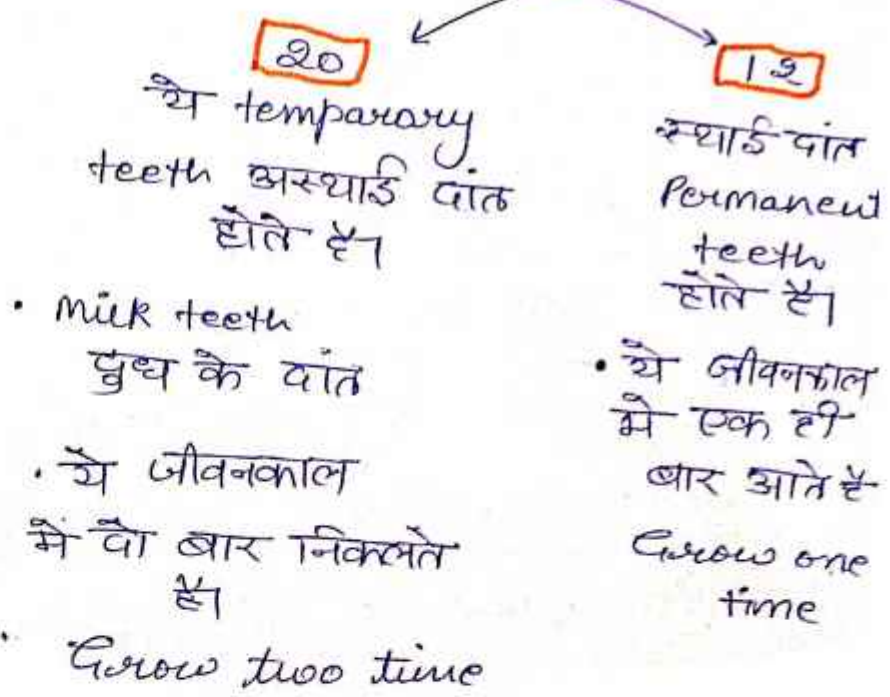 20
ये temparary
teeth अस्थाई दांत
होते है।
• Milk teeth
दुध के दांत
• ये जीवनकाल
में दो बार निकलते
है।
• Grow two time
12
स्थाई दांत
Permanent
teeth
होते है।
• ये जीवनकाल
मे एक ही
बार आते है
Grow one
time